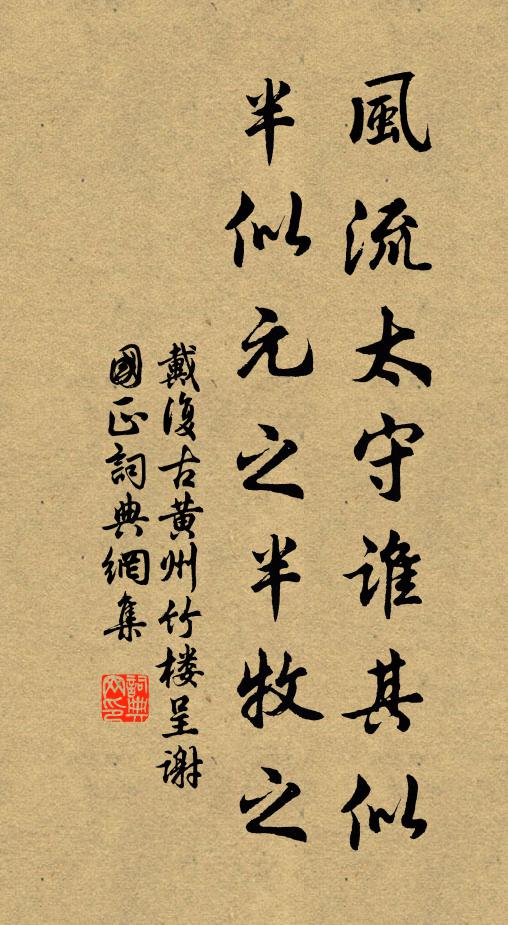 風流太守誰其似
半似元之半牧之
戴復古黃州竹楼呈謝
國正詞典網集
詞典